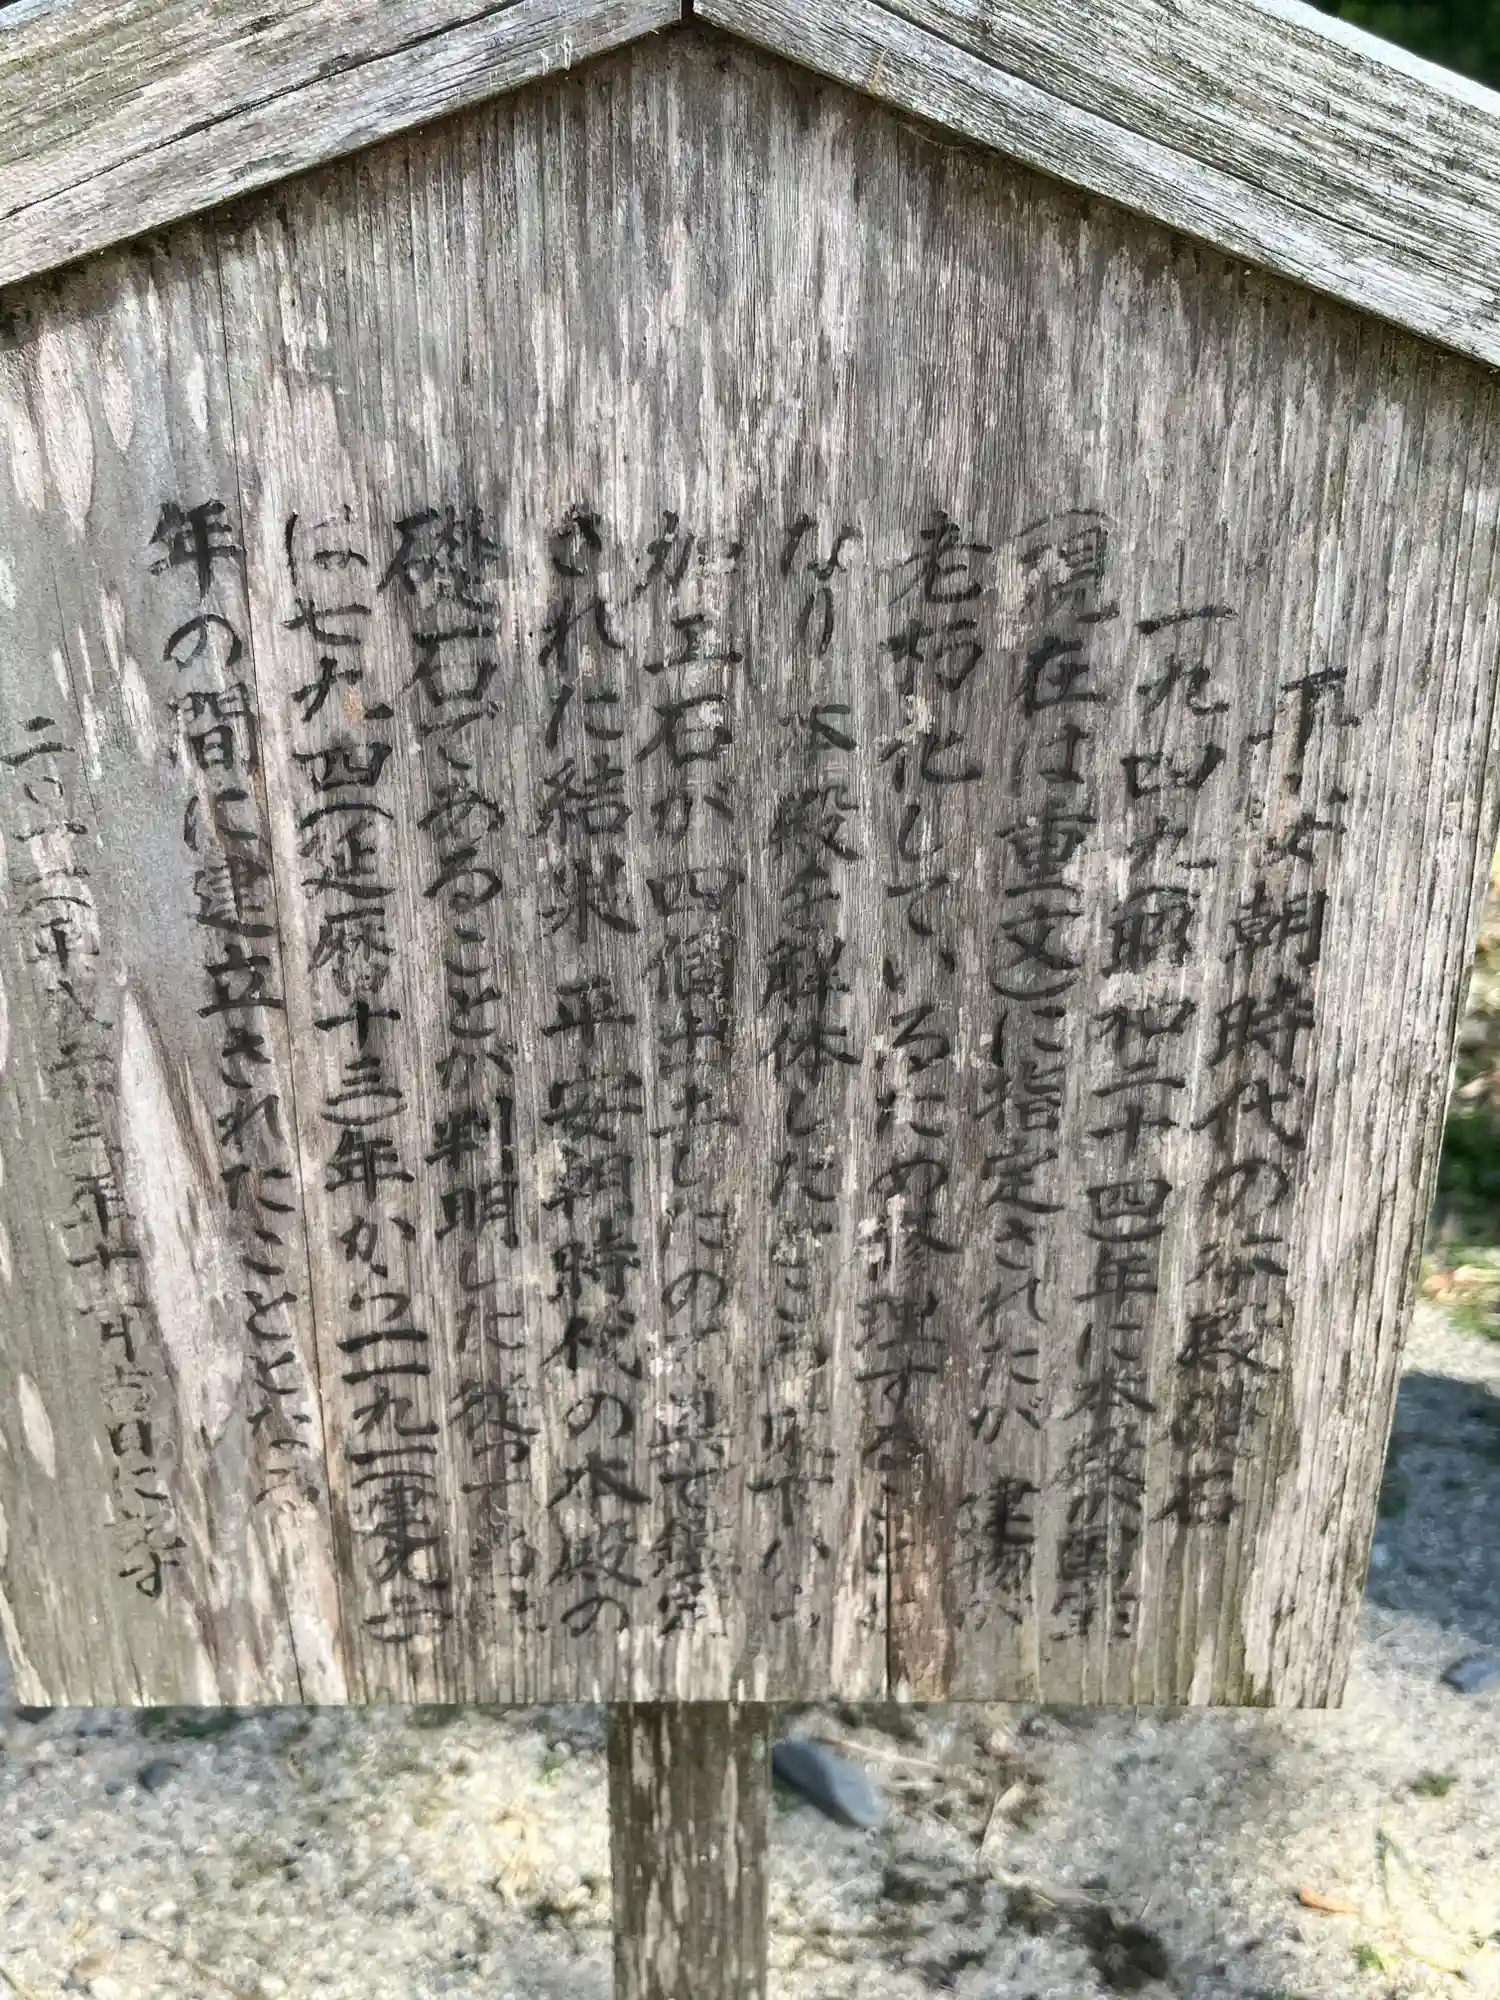 平安朝時代の本殿礎石
一九四九(昭和二十四)年に本殿が国宝
(現在は重文)に指定されたが 建物が
老朽化しているため修理すること
なり 本殿を解体したところ床下から
加工石が四個出土したので 県で鑑定
された結果 平安朝時代の本殿の
礎石であることが判明した 従って
は七九四(延暦十三)年から一一九一(建久二)
年の間に建立されたこととなる
二〇一一年